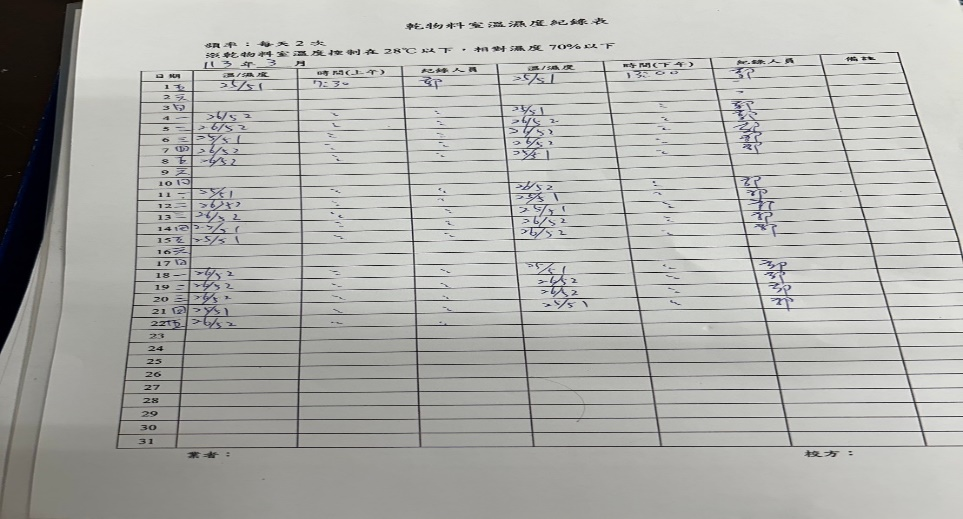 乾物料室溫濕度紀錄表
頻率：每天2次
乾物料室溫度控制在28℃以下，相對濕度70%以下
113年3月
日期 溫/濕度 時間(上午) 紀錄人員 溫/濕度 時間(下午) 紀錄人員 備註
1 五 25/51 7:30 25/51 13:00
2 六
3 日
4 一 26/52 〃 〃 25/51 〃
5 二 26/52 〃 〃 26/52 〃
6 三 25/51 〃 〃 26/52 〃
7 四 26/52 〃 〃 26/52 〃
8 五 26/52 〃 25/51 〃
9 六
10 日
11 一 25/51 〃 〃 26/52 〃
12 二 26/52 〃 〃 25/51 〃
13 三 26/52 〃 〃 25/51 〃
14 四 25/51 〃 〃 26/52 〃
15 五 25/51 〃 〃 26/52 〃
16 六
17 日
18 一 26/52 〃 〃 25/51 〃
19 二 26/52 〃 〃 26/52 〃
20 三 26/52 〃 〃 26/52 〃
21 四 25/51 〃 〃 25/51 〃
22 五 26/52 〃 〃
23
24
25
26
27
28
29
30
31
業者： 校方：